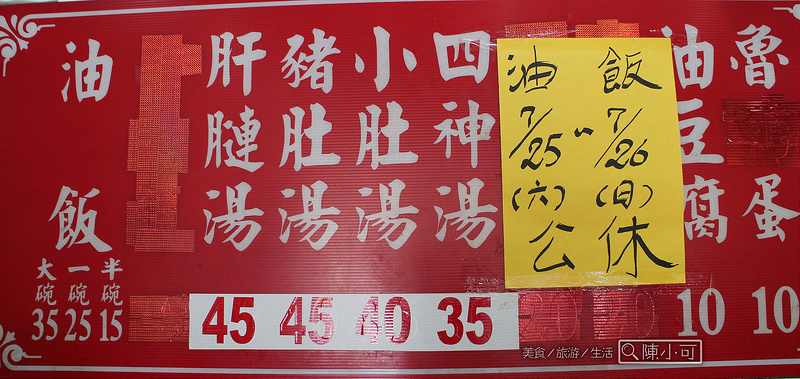 油飯
大碗 35
一碗 25
半碗 15
肝腱湯 45
豬肚湯 45
小肚湯 40
四神湯 35
油飯
7/25~7/26
(六) (日)
公休
油豆腐 10
魯蛋 10
美食/旅游/生活 陳小可